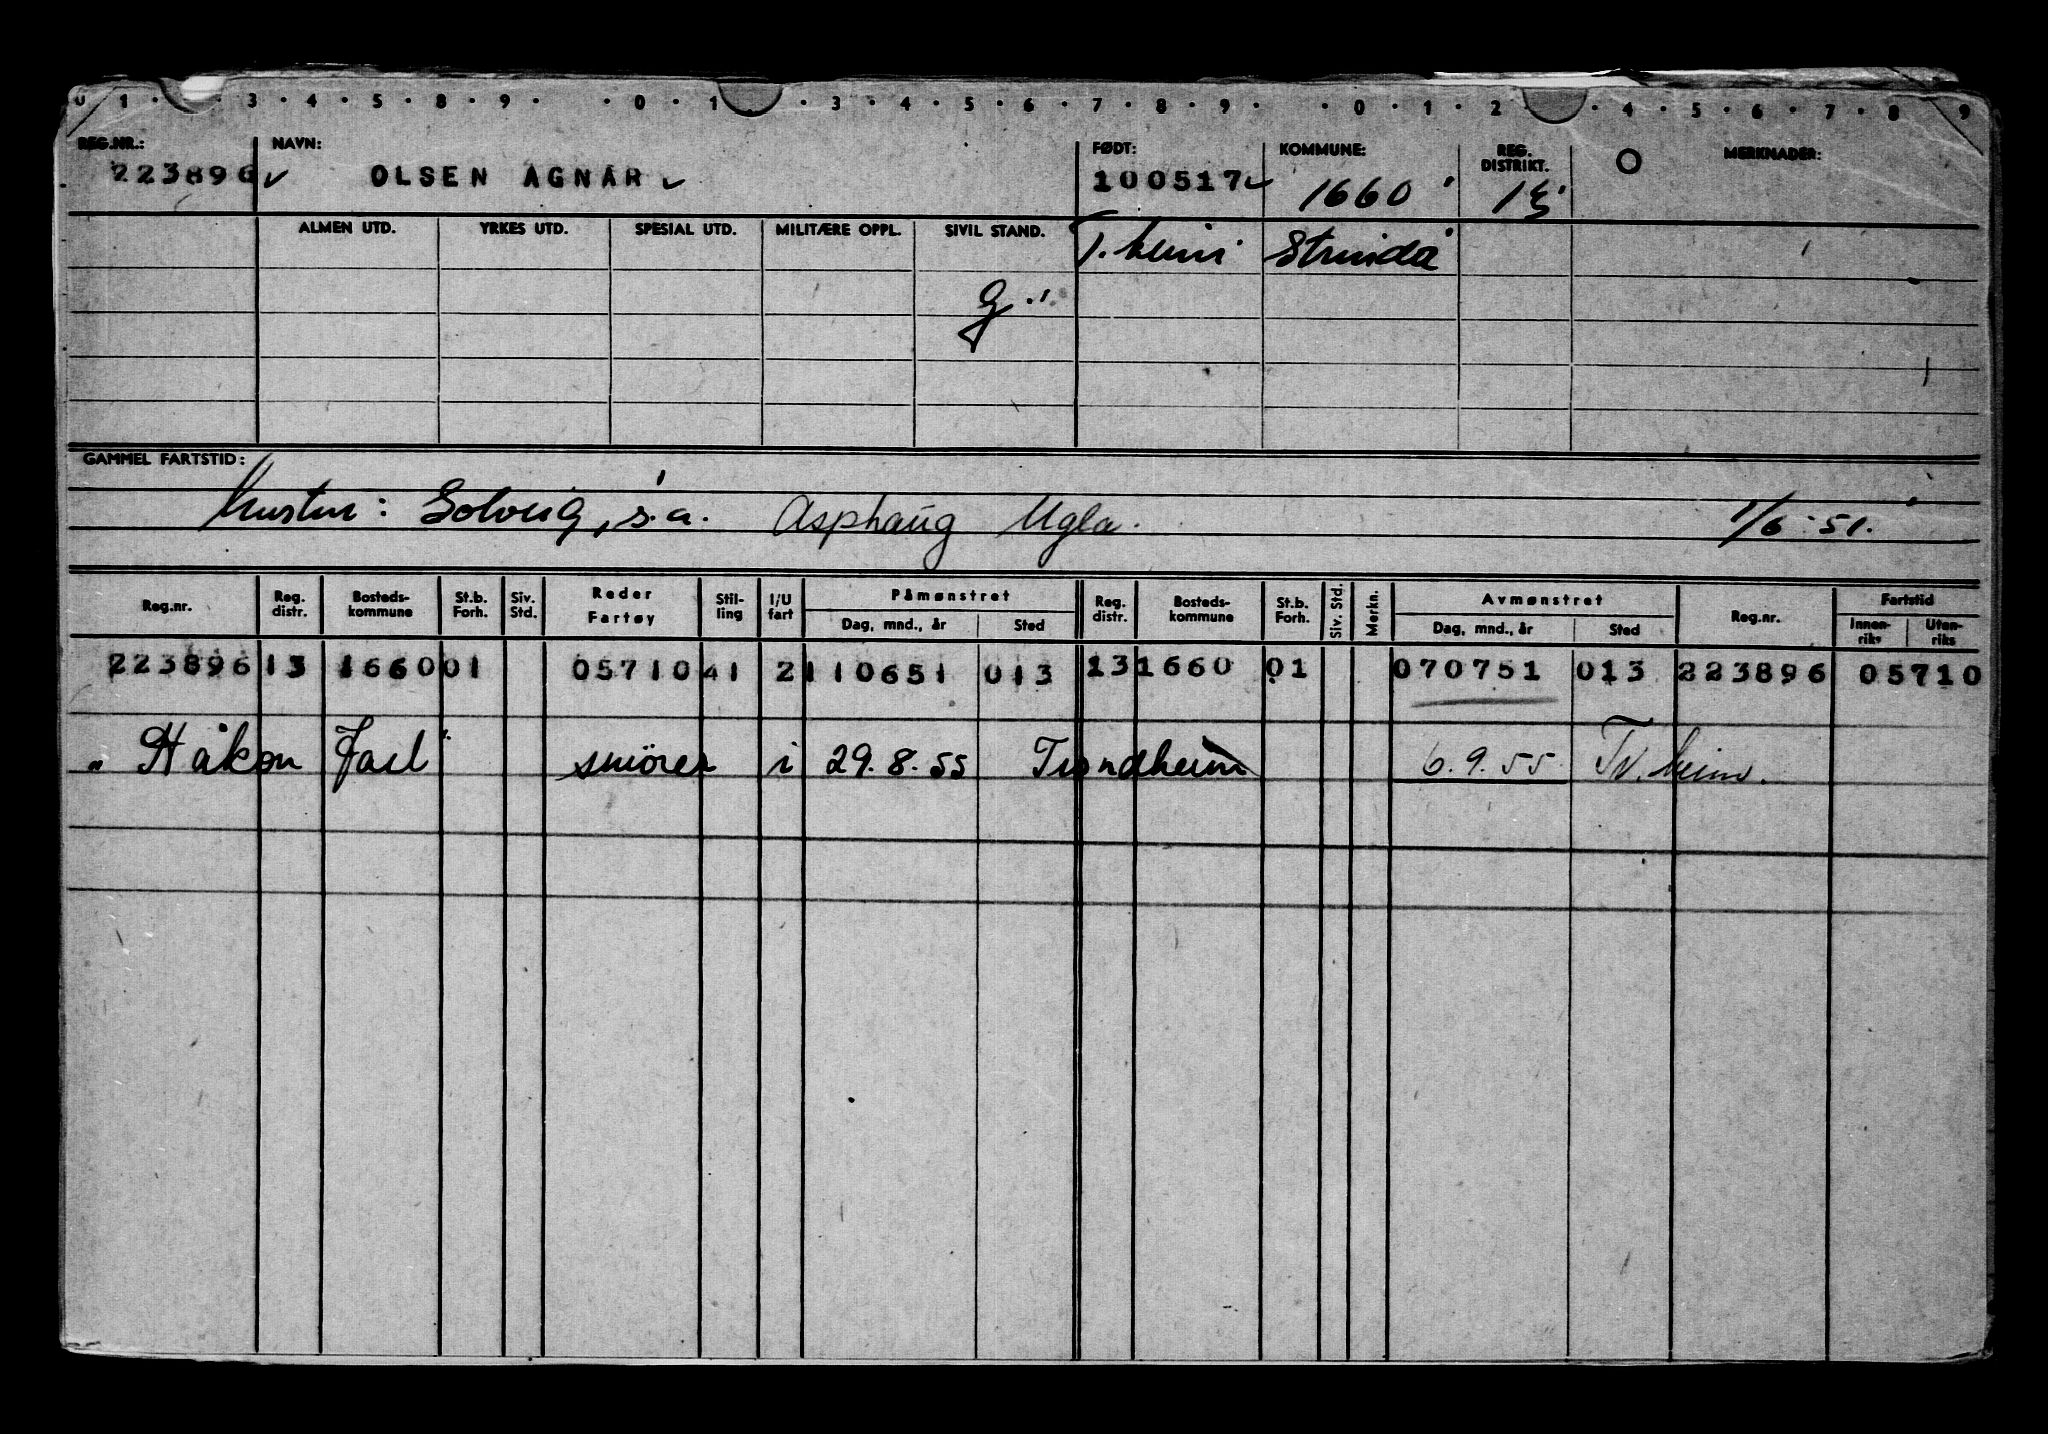 0 1 · 3 · 4 · 5 · 8 · 9 · · 0 · 1 · 3 · 4 · 5 · 6 · 7 · 8 · 9 · · 0 · 1 · 2 · 4 · 5 · 6 · 7 · 8 9
REG.NR.: NAVN: FØDT: KOMMUNE: REG. DISTRIKT. MERKNADER:
223896 OLSEN AGNAR 100517 1660 13
ALMEN UTD. YRKES UTD. SPESIAL UTD. MILITÆRE OPPL. SIVIL STAND. T.heim Strinda
g.
GAMMEL FARTSTID:
Hustru: Solveig, s.a. Asphaug Ugla. 1/6-51.
Reg.nr. Reg. distr. Bosteds-kommune St.b. Forh. Siv. Std. Reder Fartøy Stil-ling I/U fart Påmønstret Dag, mnd., år Sted Reg. distr. Bosteds-kommune St.b. Forh. Siv. Std. Merkn. Avmønstret Dag, mnd., år Sted Reg.nr. Fartstid Innen-riks Uten-riks
223896 13 1660 01 05710 41 2 110651 013 13 1660 01 070751 013 223896 05710
"Håkon Jarl" smører i 29.8.55 Trondheim 6.9.55 Tr.heim.